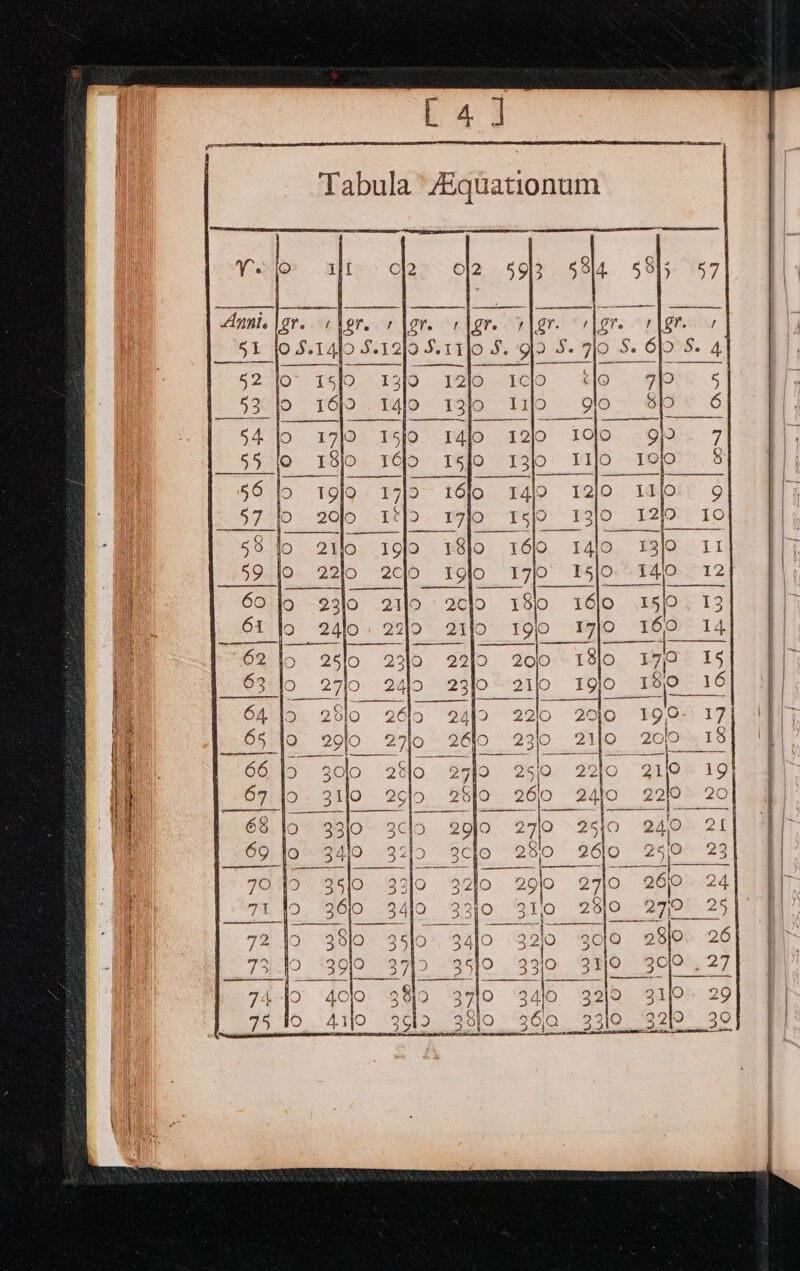 [ 4 ]
Tabula Æquationum
♈. 0 1 1 0 2 0 2 59 3 58 4 58 5 57
Anni. gr. ′ gr. ′ gr. ′ gr. ′ gr. ′ gr. ′ gr. ′
51 0 S. 14 0 S. 12 0 S. 11 0 S. 9 0 S. 7 0 S. 6 0 S. 4
52 0 15 0 13 0 12 0 10 0 8 0 7 0 5
53 0 16 0 14 0 13 0 11 0 9 0 8 0 6
54 0 17 0 15 0 14 0 12 0 10 0 9 0 7
55 0 18 0 16 0 15 0 13 0 11 0 10 0 8
56 0 19 0 17 0 16 0 14 0 12 0 11 0 9
57 0 20 0 18 0 17 0 15 0 13 0 12 0 10
58 0 21 0 19 0 18 0 16 0 14 0 13 0 11
59 0 22 0 20 0 19 0 17 0 15 0 14 0 12
60 0 23 0 21 0 20 0 18 0 16 0 15 0 13
61 0 24 0 22 0 21 0 19 0 17 0 16 0 14
62 0 25 0 23 0 22 0 20 0 18 0 17 0 15
63 0 27 0 24 0 23 0 21 0 19 0 18 0 16
64 0 28 0 26 0 24 0 22 0 20 0 19 0 17
65 0 29 0 27 0 26 0 23 0 21 0 20 0 18
66 0 30 0 28 0 27 0 25 0 22 0 21 0 19
67 0 31 0 29 0 28 0 26 0 24 0 22 0 20
68 0 33 0 30 0 29 0 27 0 25 0 24 0 21
69 0 34 0 32 0 30 0 28 0 26 0 25 0 23
70 0 35 0 33 0 32 0 29 0 27 0 26 0 24
71 0 36 0 34 0 33 0 31 0 28 0 27 0 25
72 0 38 0 35 0 34 0 32 0 30 0 28 0 26
73 0 39 0 37 0 35 0 33 0 31 0 30 0 27
74 0 40 0 38 0 37 0 34 0 32 0 31 0 29
75 0 41 0 39 0 38 0 36 0 33 0 32 0 30